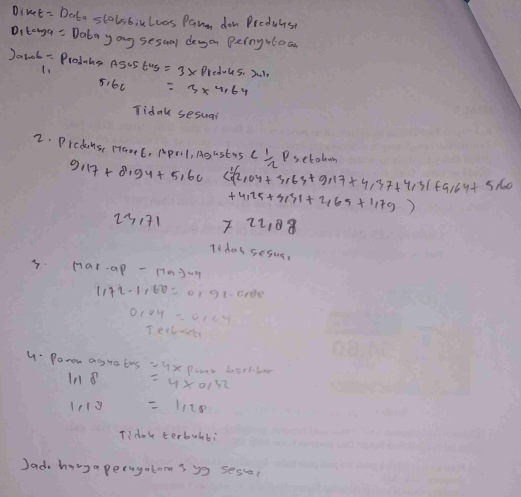 Diket = Data statistik Luas Panen dan Produksi
Ditanya = Data yang sesuai dengan Pernyataan
Jawab = Produksi Agustus = 3 x Produksi Juli
1.
5,60 = 3 x 4,64
Tidak sesuai
2. Produksi Maret, April, Agustus < 1/2 P setahun
9,17 + 8,94 + 5,60 < 1/2 (2,04 + 3,63 + 9,17 + 4,37 + 4,31 + 4,64 + 5,60
+ 4,25 + 3,31 + 2,65 + 1,79 )
23,71 > 22,88
Tidak sesuai
3. Mar-ap =
1,72 - 1,68 =
0,04 = 0,04
Terbukti
4. Panen agustus = 4 x panen
1,18 = 4 x 0,32
1,18 = 1,28
Tidak terbukti
Jadi hanya pernyataan 3 yg sesuai